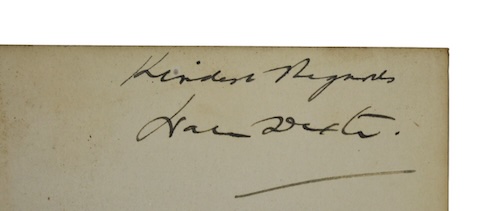 Kindest Regards
Dexter.